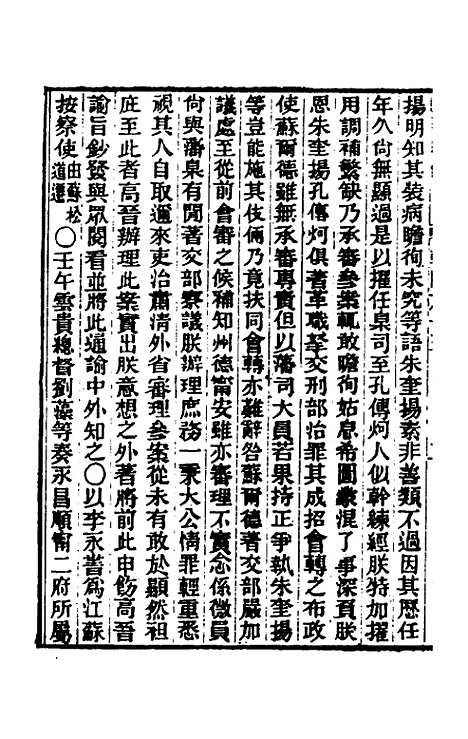 揚明知其裝病瞻徇未究等語朱奎揚素非善類不過因其歷任
年久尙無顯過是以擢任臬司至孔傳炣人似幹練經朕特加擢
用調補繁缺乃承審參案輒敢瞻徇姑息希圖蒙混了事深負朕
恩朱奎揚孔傳炣俱著革職拏交刑部治罪其成招會轉之布政
使蘇爾德雖無承審專責但以藩司大員若果持正爭執朱奎揚
等豈能施其伎倆乃竟扶同會轉亦難辭咎蘇爾德著交部嚴加
議處至從前會審之候補知州德甯安雖亦審理不實念係微員
尙與藩臬有閒著交部察議朕辦理庶務一秉大公情罪輕重悉
視其人自取邇來吏治肅清外省審理參案從未有敢於顯然袒
庇至此者高晉辦理此案實出朕意想之外著將前此申飭高晉
諭旨鈔發與眾閱看並將此通諭中外知之○以李永書爲江蘇
按察使由蘇松道遷○壬午雲貴總督劉藻等奏永昌順甯二府所屬